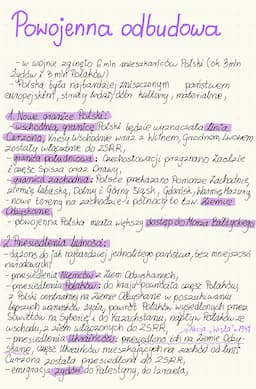 Powojenna odbudowa
- w wojnie zginęło 6 mln mieszkańców Polski (ok. 3mln
Żydów i 3 mln Polaków)
- Polska była najbardziej zniszczonym państwem
europejskim, straty ludzi, dóbr kultury, materialne,
1. Nowe granice Polski:
- wschodnią granicę Polski będzie wyznaczała linia
Curzona, kresy wschodnie wraz z Wilnem, Grodnem, Lwowem
zostały włączone do ZSRR,
- granica południowa: Czechosłowacji przyznano Zaolzie
i część Spisza oraz Orawy,
- granica zachodnia: Polsce przekazano Pomorze Zachodnie,
ziemię lubuską, Dolny i Górny Śląsk, Gdańsk, Warmię, Mazury
nowe tereny na zachodzie i północy to tzw. Ziemie
Odzyskane,
- powojenna Polska miała większy dostęp do Morza Bałtyckiego
2. Przesiedlenia ludności:
- dążono do jak najbardziej jednolitego państwa, bez mniejszości
narodowych
- przesiedlenia Niemców z Ziem Odzyskanych,
- przesiedlenia Polaków: do kraju powróciła część Polaków,
z Polski centralnej na Ziemie Odzyskane w poszukiwaniu
lepszych warunków życia, powrót Polaków wysiedlonych przez
Sowietów na Syberię i do Kazachstanu, napływ Polaków ze
wschodu, z ziem włączonych do ZSRR,
"Akcja „Wisła" 1947
- przesiedlenia Ukraińców: przesiedlono ich na Ziemie Odzy-
skane, część Ukraińców mieszkających na zachód od linii
Curzona została przesiedlona do ZSRR,
- emigracja Żydów do Palestyny, do Izraela,